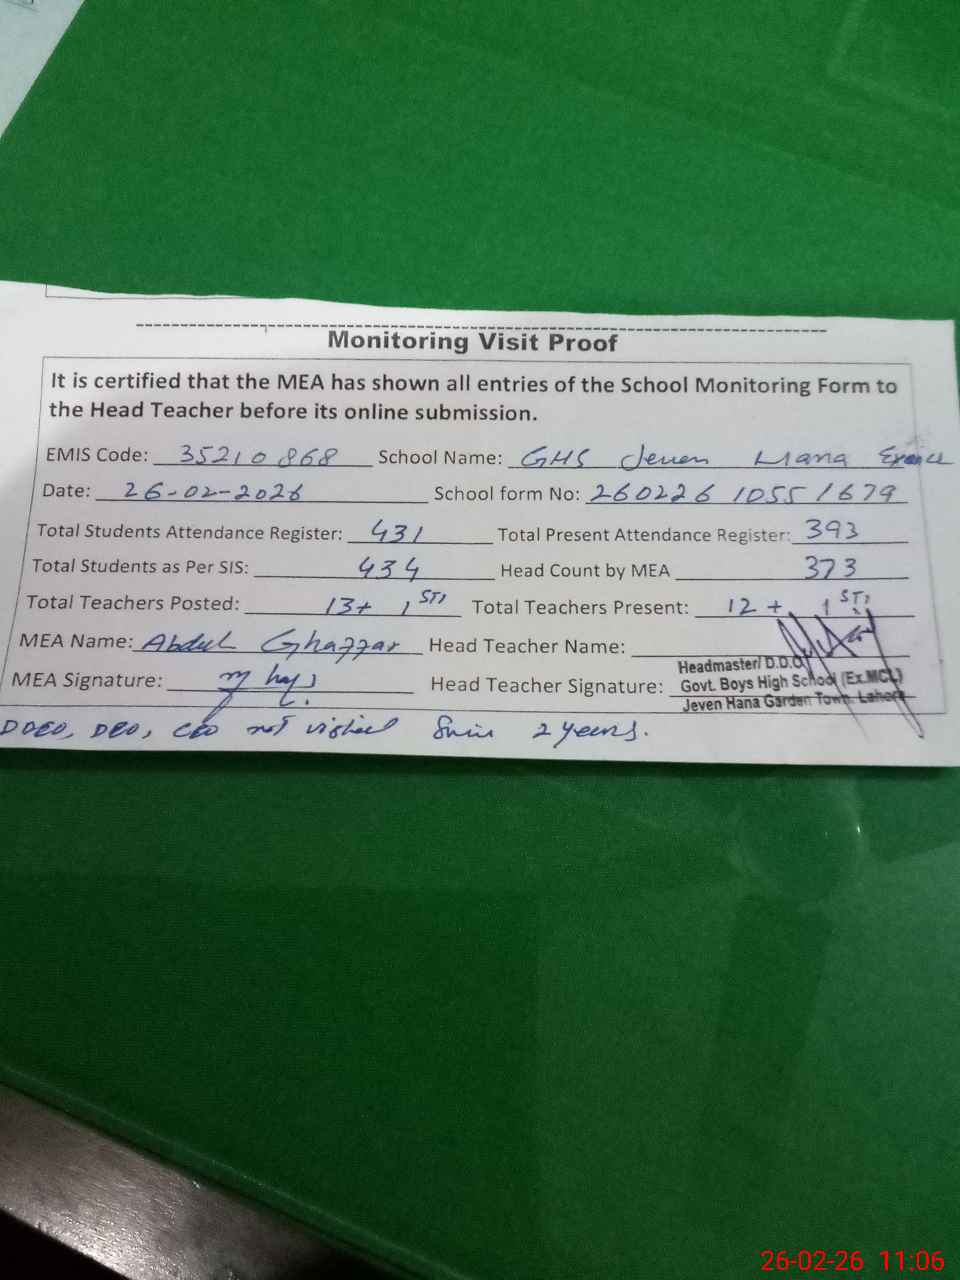 Monitoring Visit Proof
It is certified that the MEA has shown all entries of the School Monitoring Form to
the Head Teacher before its online submission.
EMIS Code: 35210868 School Name: GHS Jeven Hana
Date: 26-02-2026 School form No: 260226 1055 1679
Total Students Attendance Register: 431 Total Present Attendance Register: 393
Total Students as Per SIS: 434 Head Count by MEA 373
Total Teachers Posted: 13+ 1 STI Total Teachers Present: 12 + 1 STI
MEA Name: Abdul Ghaffar Head Teacher Name:
MEA Signature: Head Teacher Signature:
Headmaster/ D.D.O
Govt. Boys High School (Ex.MCL)
Jeven Hana Garden Town. Lahore
DDEO, DEO, CEO not visited 2 years.
26-02-26 11:06